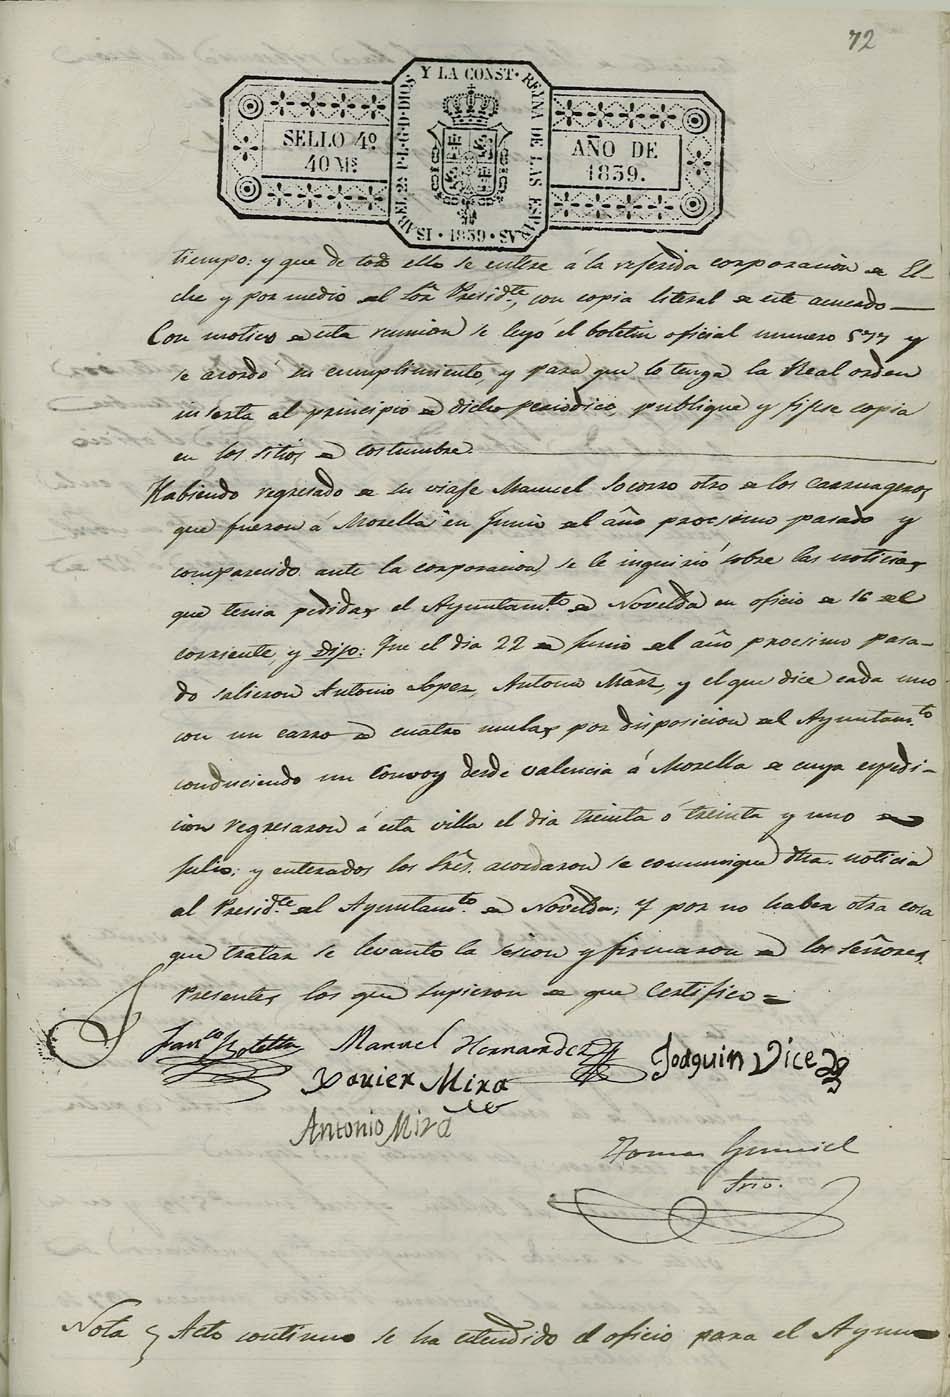 72
SELLO 4º
40 Ms.
ISABEL 2ª P. L. G. D. DIOS Y LA CONST. REYNA DE LAS ESPAÑAS
· 1839 ·
AÑO DE
1839.
tiempo: y que de todo ello se entere á la referida corporacion de El-
che y por medio del Sor. Presidte., con copia literal de este acuerdo
Con motivo de esta reunion se leyó el boletin oficial numero 577 y
se acordó su cumplimiento, y para que lo tenga la Real orden
inserta al principio de dicho periodico, publique y fijese copia
en los sitios de costumbre.
Habiendo regresado de su viaje Manuel Socorro otro de los carruageros
que fueron á Morella en Junio del año procsimo pasado y
comparecido ante la corporacion se le inquirió sobre las noticias
que tenia pedidas el Ayuntamto. de Novelda en oficio de 16 del
corriente, y dijo: Que el dia 22 de Junio del año procsimo pasa-
do salieron Antonio Lopez, Antonio Marz. y el que dice cada uno
con un carro de cuatro mulas por disposicion del Ayuntamto.
conduciendo un Convoy desde Valencia á Morella de cuya espedi-
cion regresaron á esta villa el dia treinta ó treinta y uno de
Julio; y enterados los Sres. acordaron se comunique dha. noticia
al Presidte. del Ayuntamto. de Novelda; y por no haber otra cosa
que tratar se levanto la sesion y firmaron de los señores
Presentes los que supieron de que Certifico =
Franco. Botella Manuel Hernandez Joaquin Vice
Xavier Mira
Antonio Mira
Tomas
Srio.
Nota Acto continuo se ha estendido el oficio para el Ayun